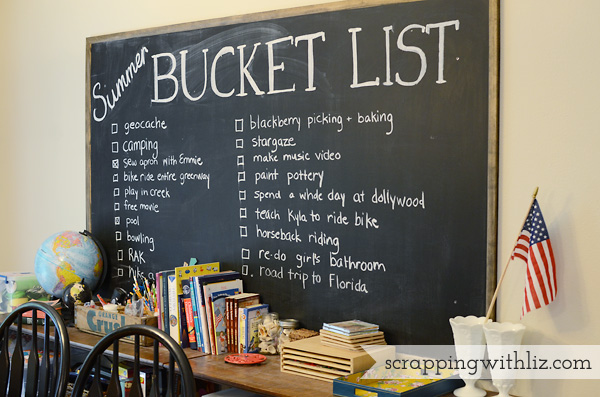 Summer
BUCKET LIST
geocache
camping
sew apron with Emmie
bike ride entire greenway
play in creek
free movie
pool
bowling
RAK
hike
blackberry picking + baking
stargaze
make music video
paint pottery
spend a whole day at dollywood
teach Kyla to ride bike
horseback riding
re-do girl's bathroom
road trip to Florida
scrappingwithliz.com